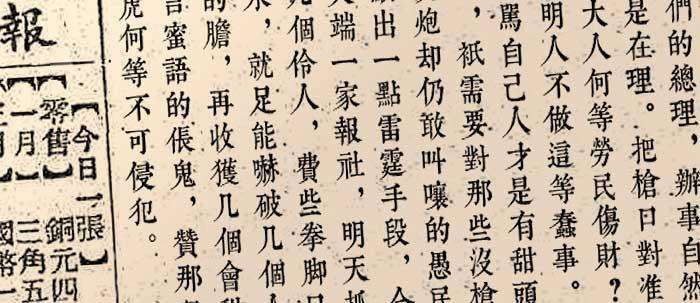 們的總理，辦事自然
是在理。把槍口對准
大人何等勞民傷財？
明人不做這等蠢事。
罵自己人才是有甜頭
，衹需要對那些沒槍
炮却仍敢叫嚷的愚民
出一點雷霆手段，
天端一家報社，明天抓
几個伶人，費些拳脚
水，就足能嚇破几個人
的膽，再收獲几個會甜
言蜜語的倀鬼，贊那
虎何等不可侵犯。
報
【今日一張】
【零售】銅元四
【一月】三角五
月】國幣一